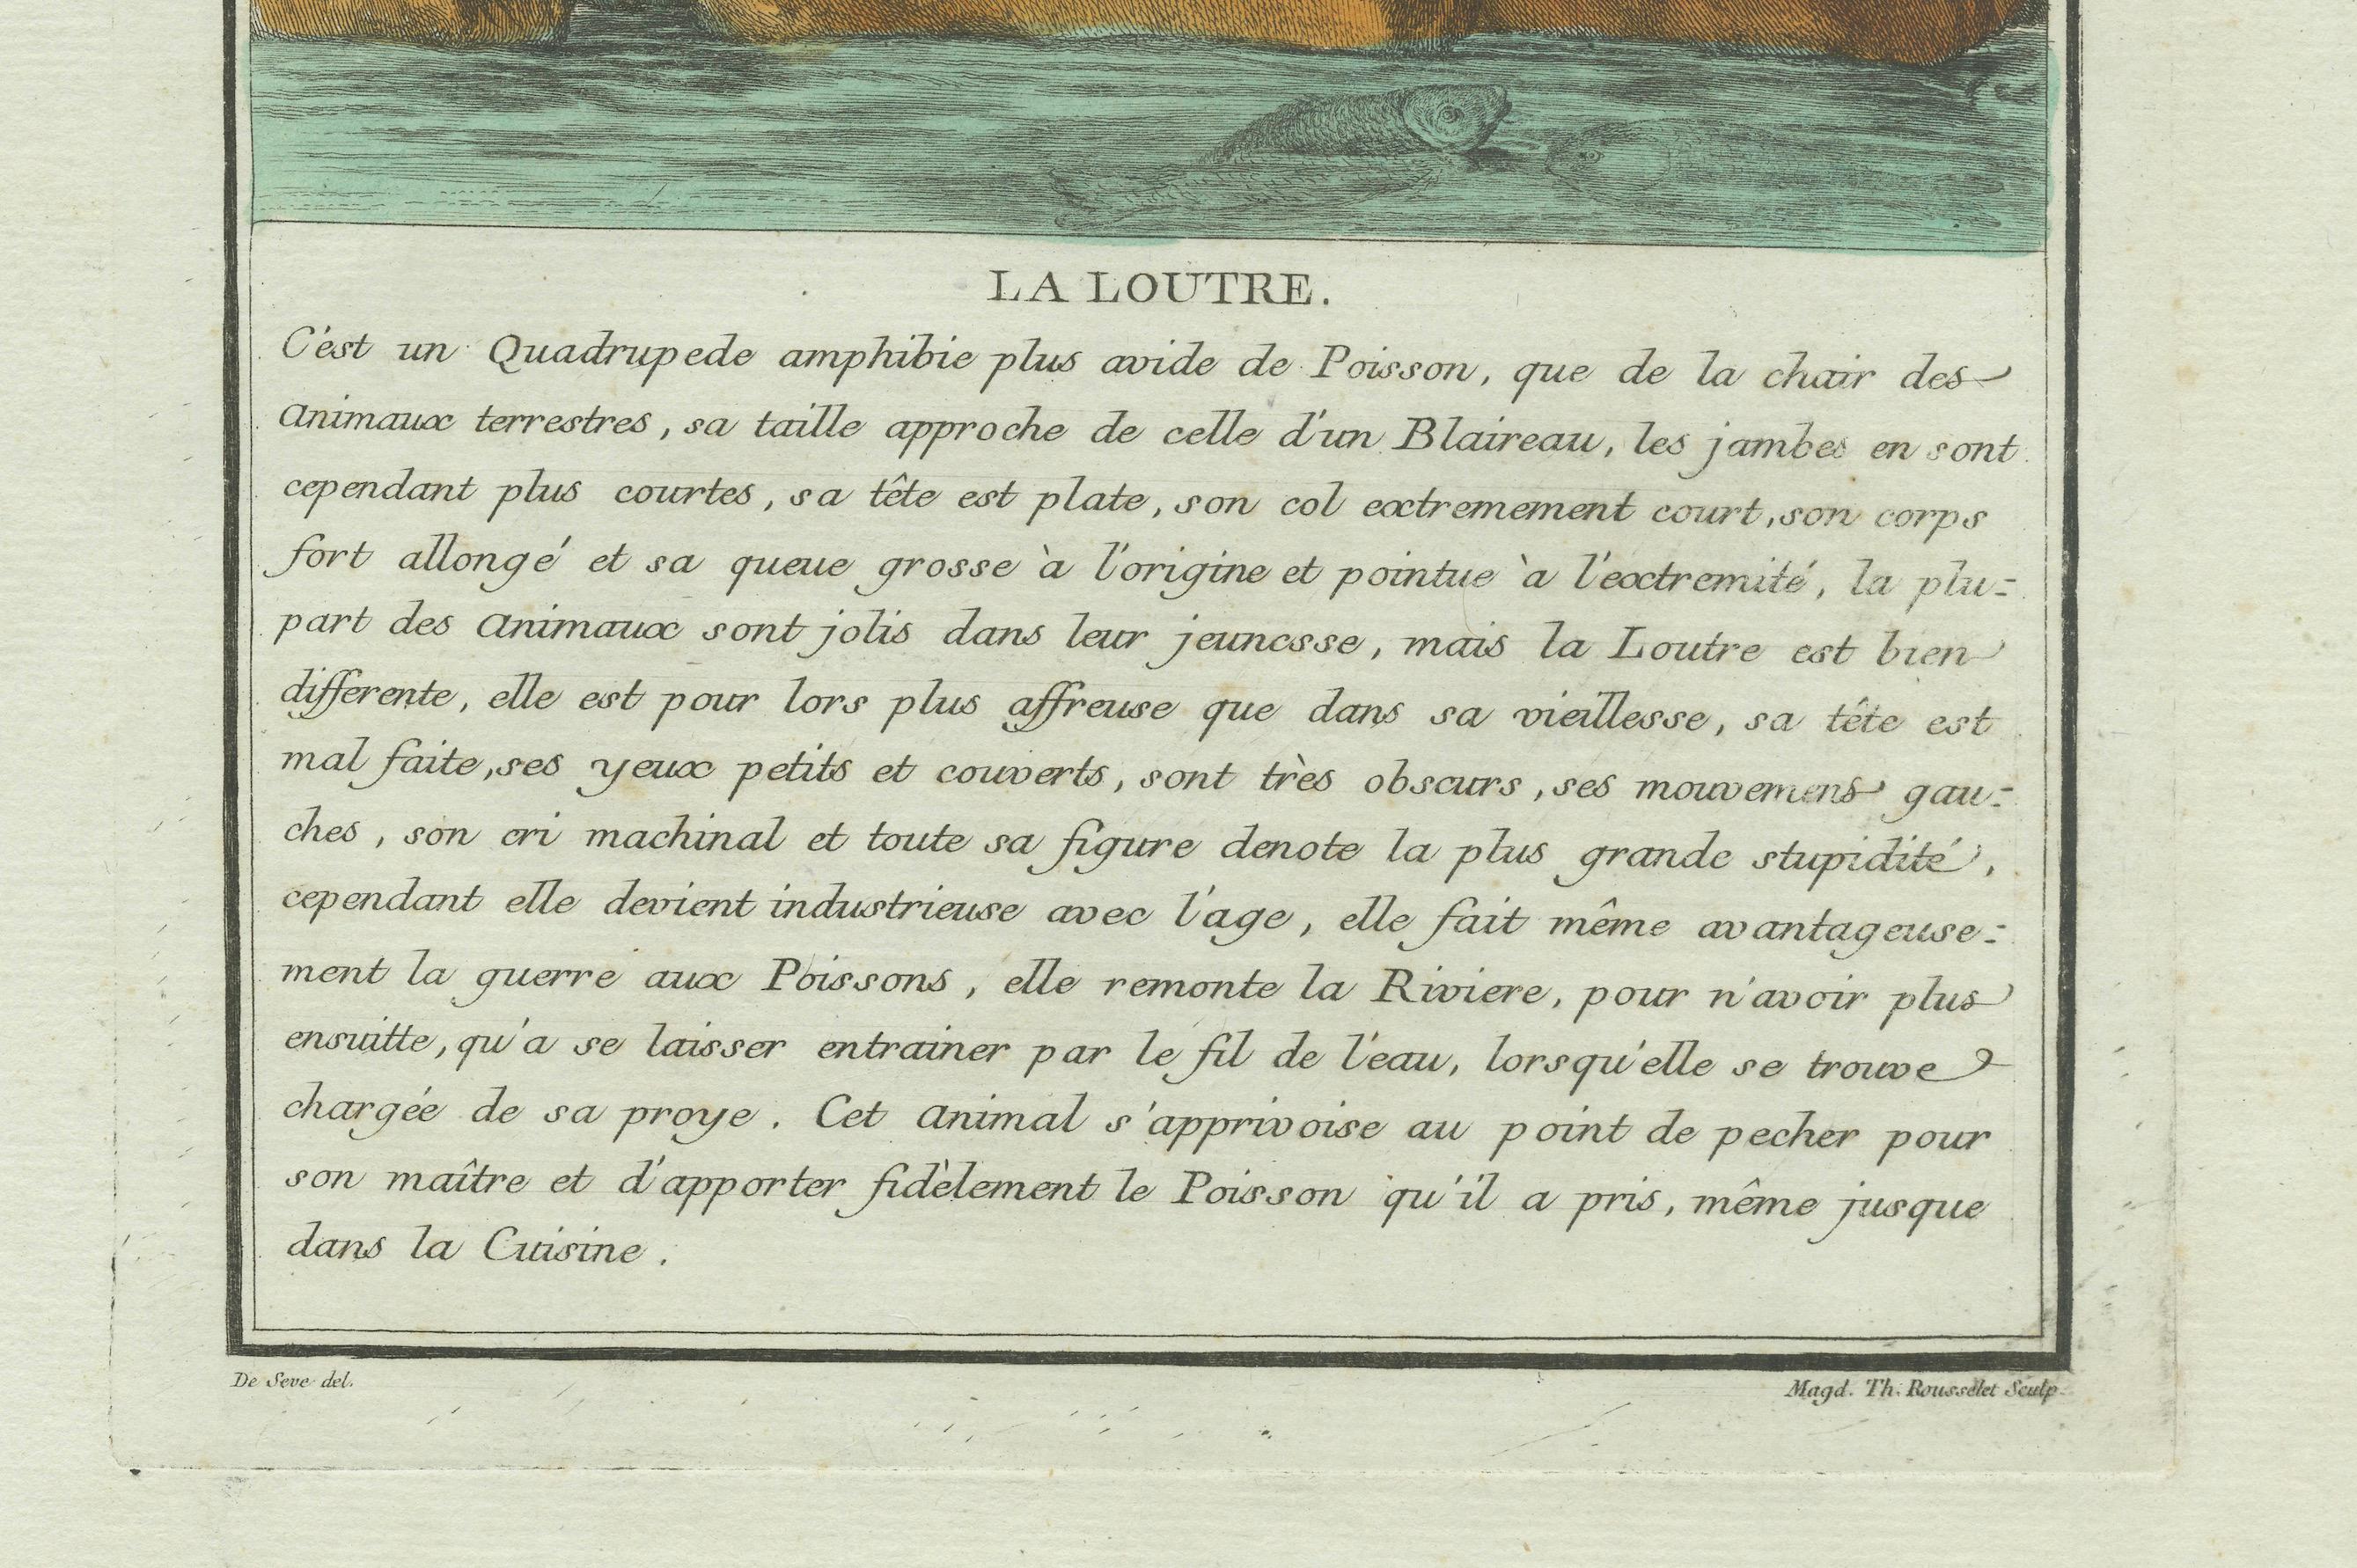 LA LOUTRE.
C'ést un Quadrupede amphibie plus avide de Poisson, que de la chair des
animaux terrestres, sa taille approche de celle d'un Blaireau, les jambes en sont
cependant plus courtes, sa tête est plate, son col extremement court, son corps
fort allongé et sa queue grosse à l'origine et pointue à l'extremité, la plu=
part des animaux sont jolis dans leur jeunesse, mais la Loutre est bien
differente, elle est pour lors plus affreuse que dans sa vieillesse, sa tête est
mal faite, ses yeux petits et couverts, sont très obscurs, ses mouvemens gau=
ches, son cri machinal et toute sa figure denote la plus grande stupidité,
cependant elle devient industrieuse avec l'age, elle fait même avantageuse=
ment la guerre aux Poissons, elle remonte la Riviere, pour n'avoir plus
ensuitte, qu'a se laisser entrainer par le fil de l'eau, lorsqu'elle se trouve
chargée de sa proye. Cet animal s'apprivoise au point de pecher pour
son maître et d'apporter fidèlement le Poisson qu'il a pris, même jusque
dans la Cuisine.
De Seve del.
Magd. Th. Rousselet Sculp.